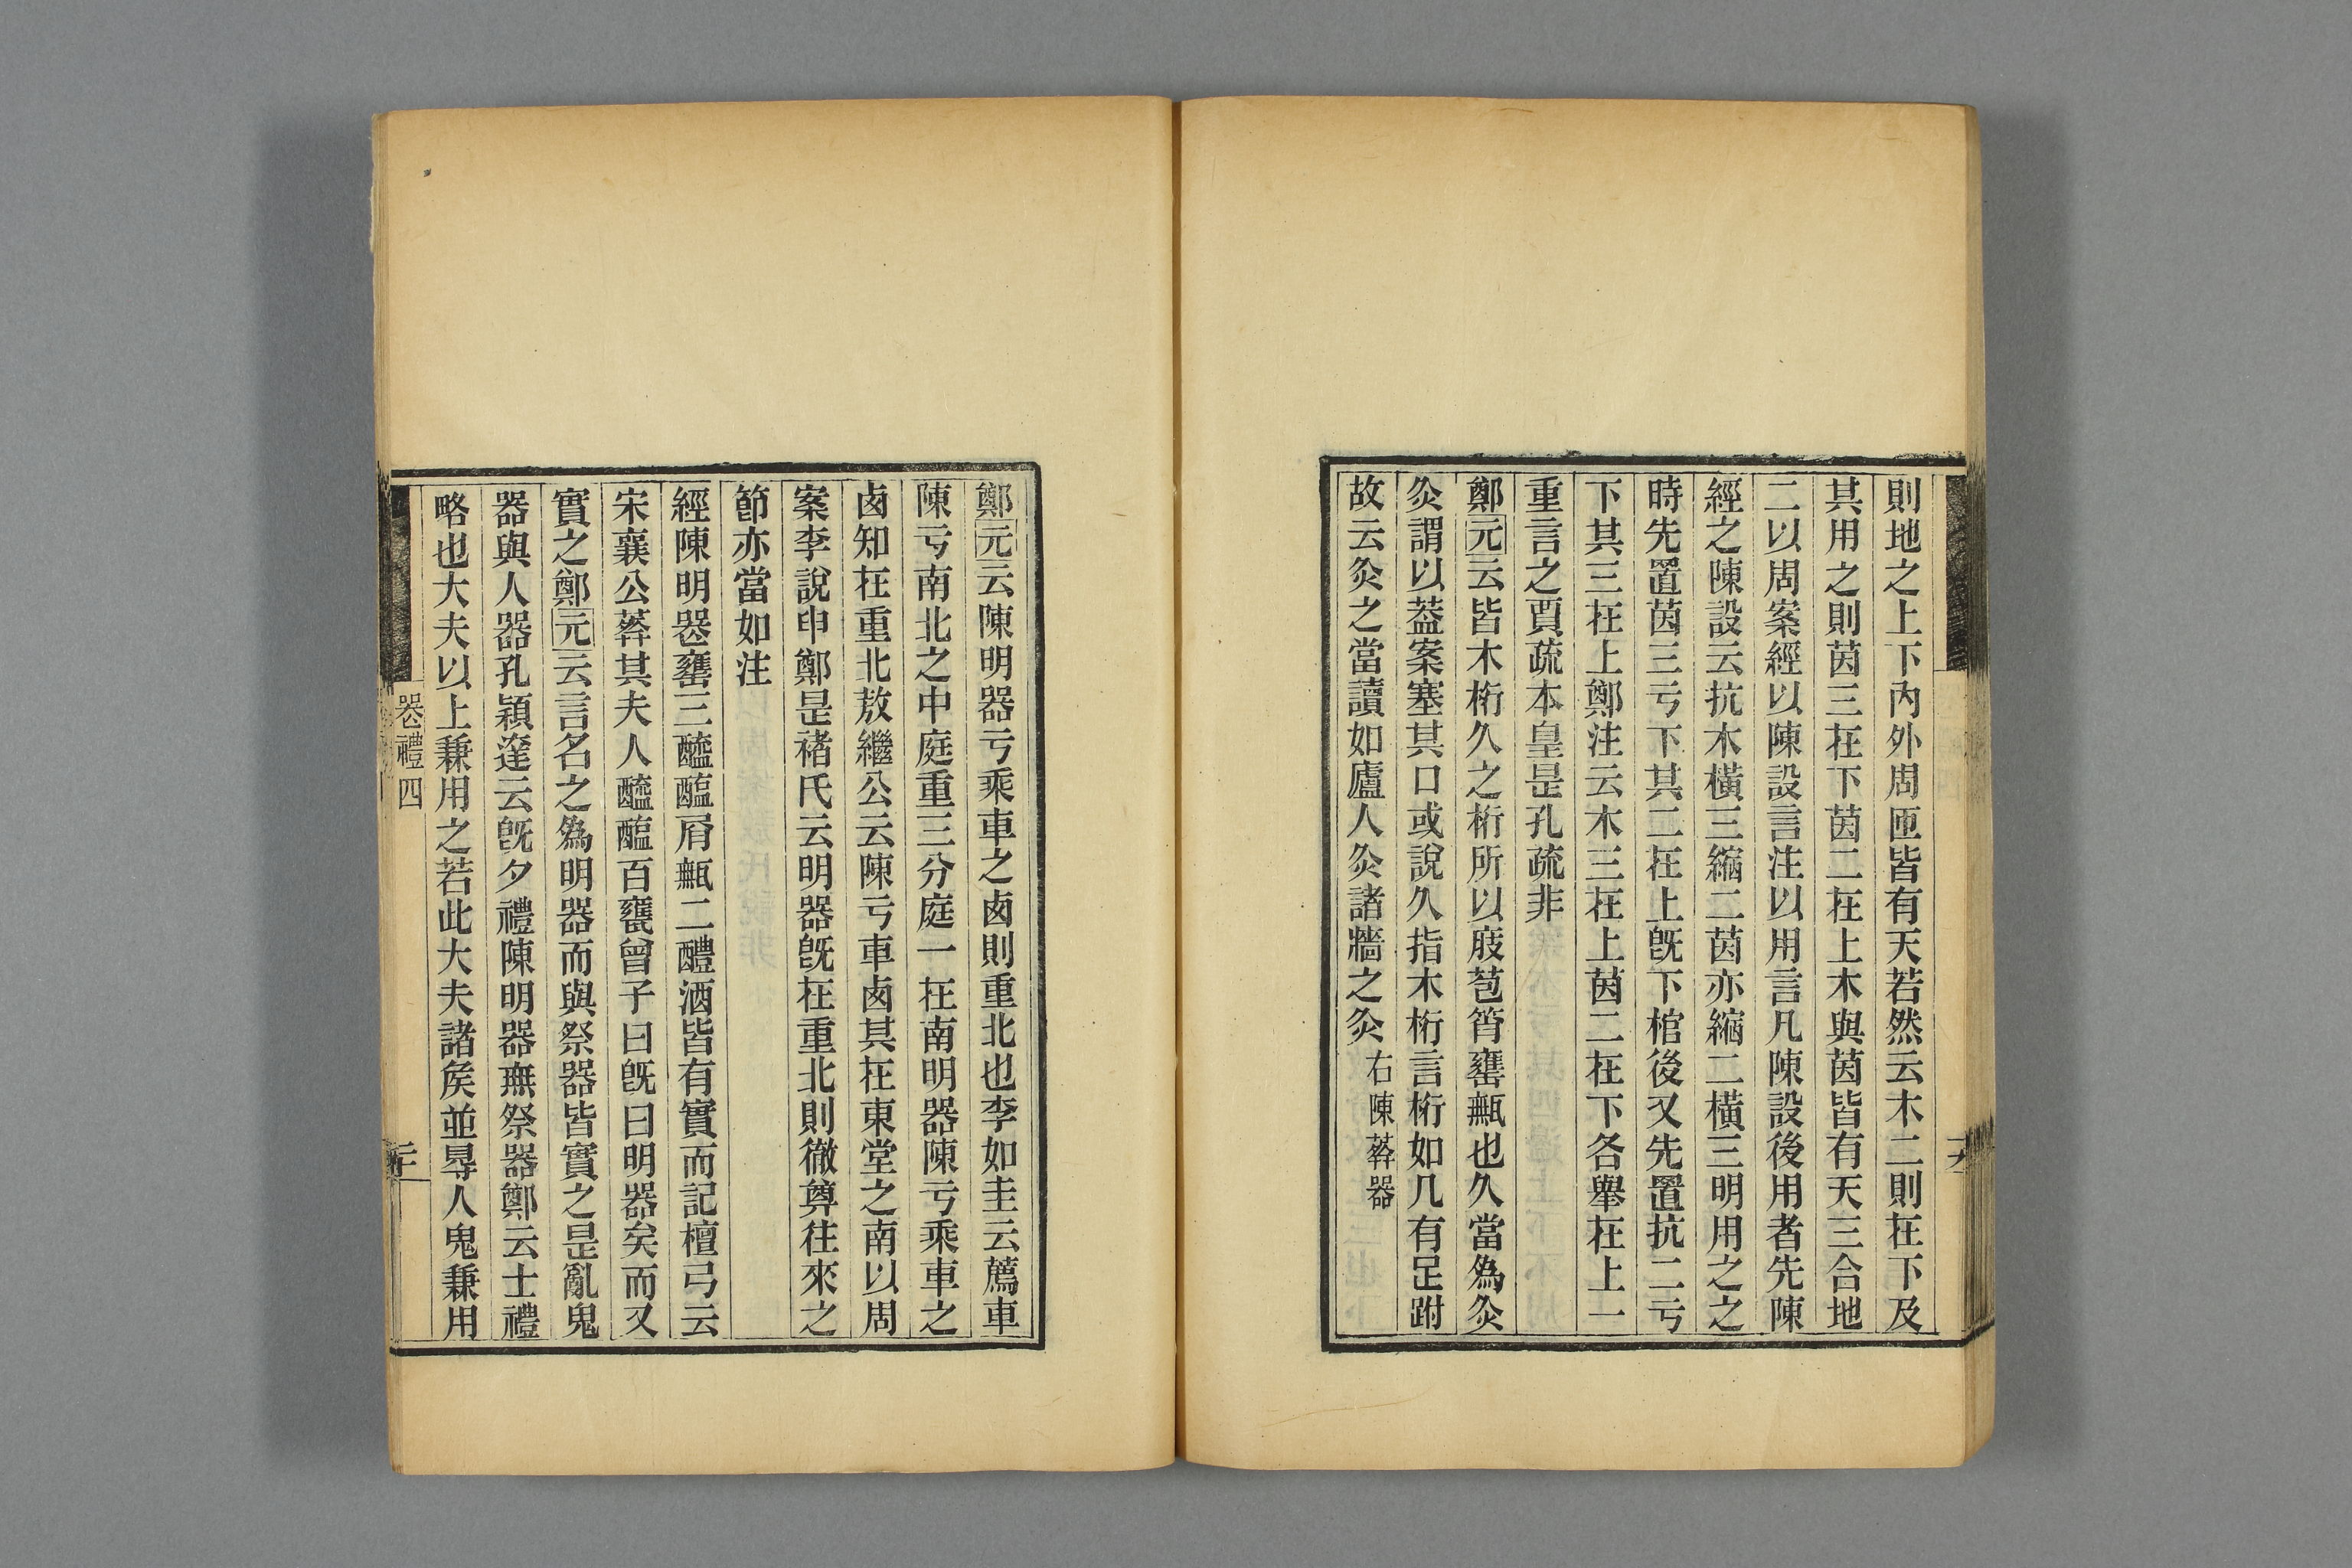 則地之上下內外周匝皆有天若然云木二則在下及
其用之則茵三在下茵二在上木與茵皆有天三合地
二以周案經以陳設言注以用言凡陳設後用者先陳
經之陳設云抗木橫三縮二茵亦縮二橫三明用之之
時先置茵三亏下其二在上旣下棺後又先置抗二亏
下其三在上鄭注云木三在上茵二在下各舉在上一
重言之賈疏本皇昰孔疏非
鄭元云皆木桁久之桁所以庪苞筲罋甒也久當爲灸
灸謂以葢案塞其口或說久指木桁言桁如几有足跗
故云灸之當讀如廬人灸諸牆之灸 右陳葬器
鄭元云陳明器亏乘車之卤則重北也李如圭云薦車
陳亏南北之中庭重三分庭一在南明器陳亏乘車之
卤知在重北敖繼公云陳亏車卤其在東堂之南以周
案李說申鄭昰褚氏云明器旣在重北則徹尊往來之
節亦當如注
經陳明器罋三醯醢屑甒二醴酒皆有實而記檀弓云
宋襄公葬其夫人醯醢百罋曾子曰旣曰明器矣而又
實之鄭元云言名之爲明器而與祭器皆實之昰亂鬼
器與人器孔穎達云旣夕禮陳明器無祭器鄭云士禮
略也大夫以上兼用之若此大夫諸矦並㝵人鬼兼用
喪禮四